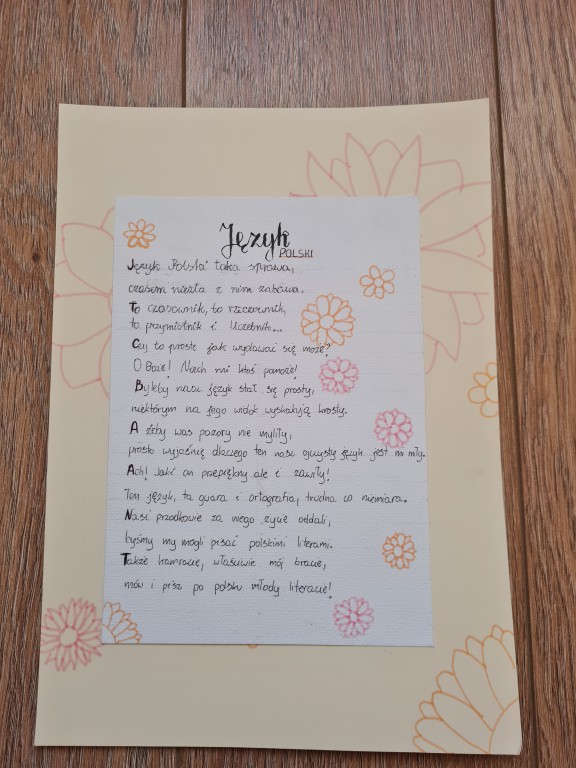 Język
POLSKI
Język Polski taka sprawa,
czasem niezła z nim zabawa.
To czasownik, to rzeczownik,
to przymiotnik i liczebnik...
Czy to proste jak wydawać się może?
O Boże! Niech mi ktoś pomoże!
Byleby nasz język stał się prosty,
niektórym na jego widok wyskakują krosty.
A żeby was pozory nie myliły,
prosto wyjaśnię dlaczego ten nasz ojczysty język jest mi miły.
Ach! Jakiż on przepiękny ale i zawiły!
Ten język, ta gwara i ortografia, trudna co niemiara.
Nasi przodkowie za niego życie oddali,
byśmy my mogli pisać polskimi literami.
Także kamracie, właściwie mój bracie,
mów i pisz po polsku młody literacie!